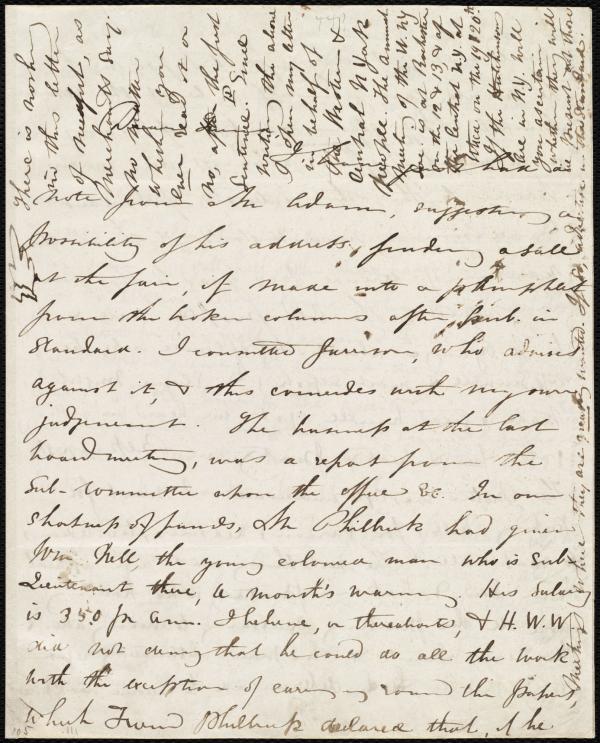 note from Mr Adam, suggesting a
possibility of his address, finding a sale
at the fair, if made into a pamphlet
from the broken columns after pub. in
Standard. I consulted Garrison, who advised
against it, & this coincides with my own
judgement. The business at the last
board meeting, was a report from the
Sub-Committee upon the office &c. In our
shortness of funds, Mr Philbrick had given
Wm. Nell, the young colored man who is Sub-
Lieutenant there, a month's warning. His Salary
is 350 pr ann. I believe, or thereabouts, & H.W.W.
did not deny that he could do all the work
with the exception of carrying round the papers,
which Friend Philbrick declared that, if he
There is nothing
in this letter
of weight, as
Merchants say.
no matter
whether you
ever read it or
no, after the first
Sentence. Since
writing the above
I open my letter
in behalf of
the Western &
Central N York
The Annual
Meeting of the W. NY
one is at Rochester
on the 12 & 13 & of
the Central N.Y. at
Utica on the 19 & 20th
If the Hutchinsons
are in N.Y. will
you ascertain
whether they will
be present at those
Meetings (where they are greatly wanted. If so, advertise in the Standard.